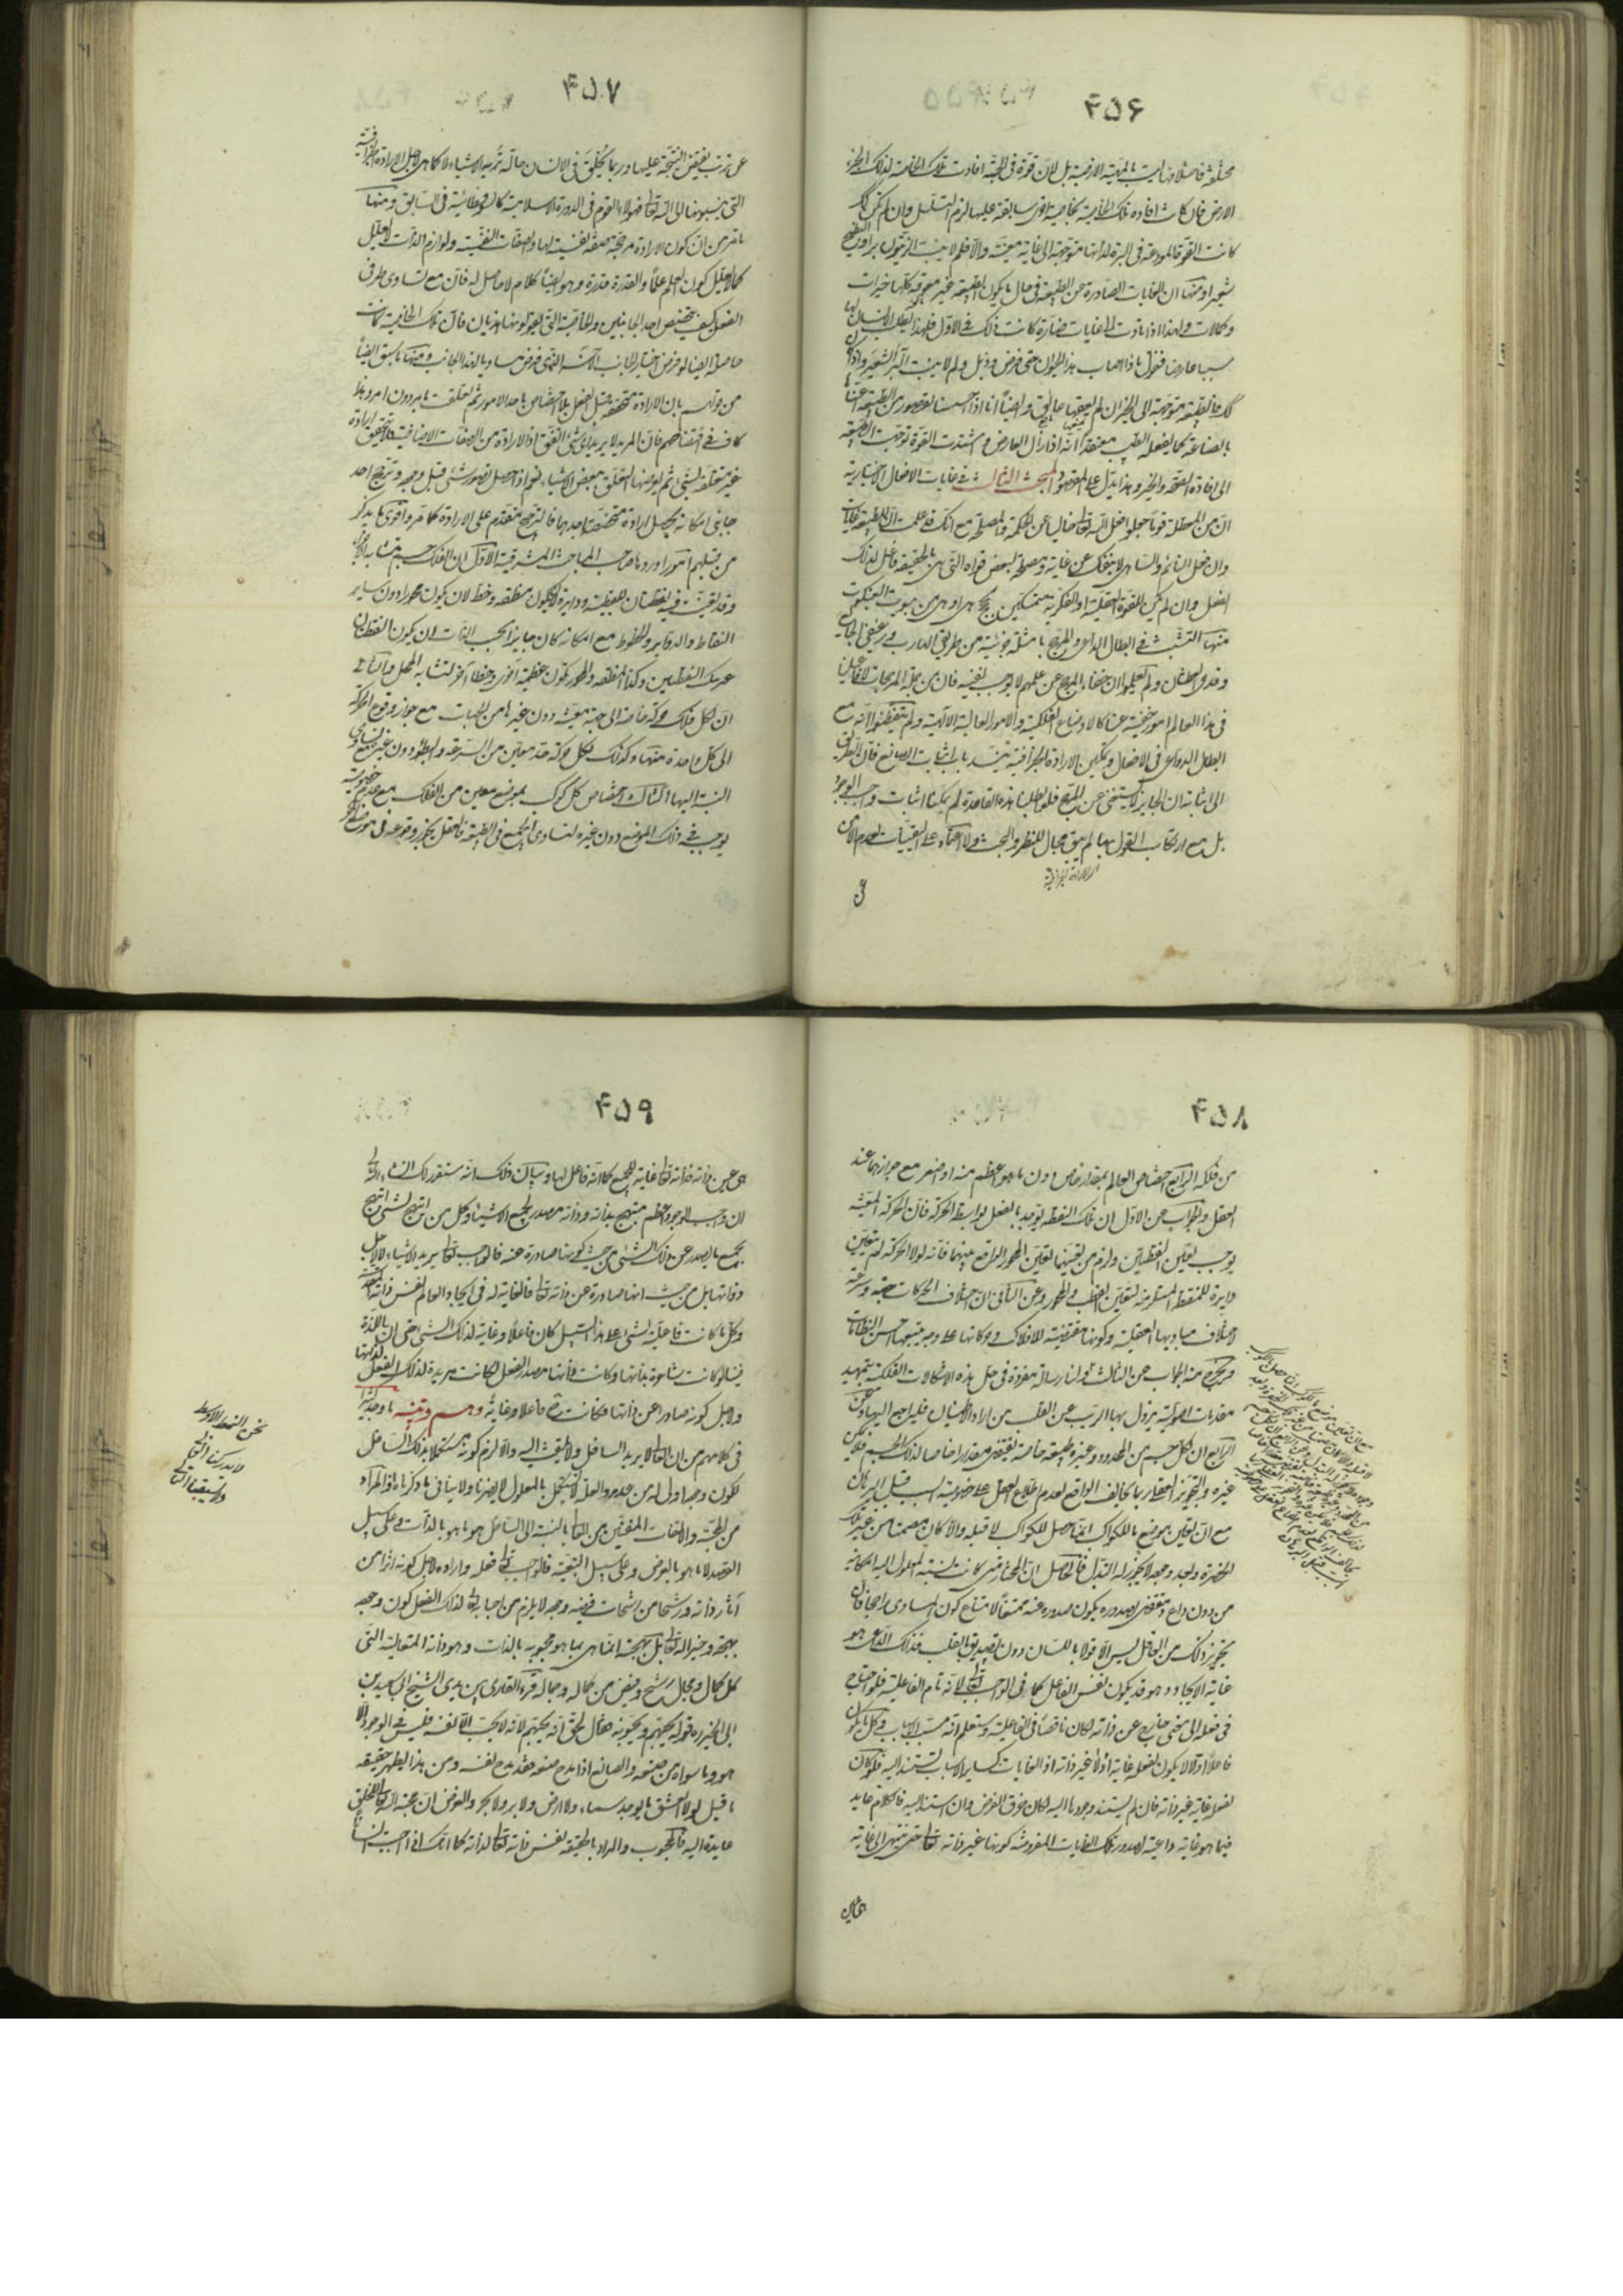 ۴۵۶
الارض فان كانت افادة تلك الخاصية بخاصية اخرى سابقة عليها لزم التسلسل وان لم تكن كك
كانت القوة المودعة فى البرة لذاتها متوجهة الى غاية معينة والا فلم لا ينبت الزيتون برا والبطيخ
شعيرا ومنها ان الغايات الصادرة عن الطبيعة فى حال ما يكون الطبيعة غير معوقة كلها خيرات
وكمالات ولهذا اذا تادت الى غايات ضارة كانت ذلك فى الاقل فلهذا يطلب الانسان لها
سببا عارضا فنقول ماذا اصاب هذا الحيوان حتى مرض وذبل ولم لا ينبت البر الشعير واذا كان
كك فالطبيعة متوجهة الى الخير ان لم يعقها عايق وايضا انا اذا احسسنا بقصور من الطبيعة اعناها
بالصناعة كما يفعله الطبيب معتقدا انه اذا زال العارض واشتدت القوة توجهت الطبيعة
الى افادة الصحة والخير وهذا يدل على المقصود المبحث الثالث فى غايات الافعال الاختيارية
ان من المعطلة قوما جعلوا فعل الله تعالى خاليا عن الحكمة والمصلحة مع انك قد علمت ان للطبيعة غايات
وان فعل النائم والساهى لا ينفك عن غاية ومصلحة لبعض قواه التى هى بالحقيقة فاعل لذلك
الفعل وان لم يكن للقوة العقلية او الفكرية متمسكين بحجج هى اوهن من بيوت العنكبوت
منها التشبث فى ابطال الداعى والمرجح بامثلة جزئية من طريقى الهارب ورغيفى الجايع
وقدحى العطشان ولم يعلموا ان خفاء المرجح عن علمهم لا يوجب نفيه فان من جملة المرجحات لافاعيلنا
فى هذا العالم امور خفية عنا كالاوضاع الفلكية والامور العالية الالهية ولم يتفطنوا انه مع
ابطال الدواعى فى الافعال وتمكين الارادة الجزافية ينسد باب اثبات الصانع فان الطريق
الى اثباته ان الجايز لا يستغنى عن المرجح فلو ابطلنا هذه القاعدة لم يمكننا اثبات واجب الوجود
بل مع ارتكاب القول بها لم يبق مجال للنظر والبحث ولا اعتماد على اليقينيات لعدم الامن
اى الارادة الجزافية
۴۵۷
عن ترتب نقيض النتيجة عليها وربما يخلق فى الانسان حالة تريه الاشياء لا كما هى لاجل الارادة الجزافية
التى ينسبونها الى الله تعالى فهولاء القوم فى الدورة الاسلامية كالسوفسطائية فى السابق ومنها
ما مر من ان كون الارادة مرجحة صفة نفسية لها والصفات النفسية ولوازم الذات لا تعلل
كما لا يعلل كون العلم علما والقدرة قدرة وهو ايضا كلام لا حاصل له فان مع تساوى طرفى
الفعل كيف يتخصص احد الجانبين والخاصية التى يقولونها هذيان فان تلك الخاصية كانت
حاصلة ايضا لو فرض اختيار الجانب الاخر الذى فرض مساويا لهذا الجانب ومنها ما سبق ايضا
من قولهم بان الارادة متحققة قبل الفعل بلا اختصاص باحد الامور ثم تعلقت بامر دون امر وهذا
كاف فى افتضاحهم فان المريد لا يريد اى شئ اتفق اذ الارادة من الصفات الاضافية فلا تتحقق ارادة
غير متعلقة بشئ ثم يعرضها التعلق ببعض الاشياء نعم اذا حصل تصور شئ قبل وجوده وترجح احد
جانبى امكانه يحصل ارادة متخصصة باحدهما فالترجيح متقدم على الارادة كما مر واقوى ما يذكر
من قبلهم امور اوردها صاحب المباحث المشرقية الاول ان الفلك جسم متشابه الاجزاء
وقد تعينت فيه نقطتان للقطبية ودايرة لان تكون منطقة وخط لان يكون محورا دون ساير
النقاط والدواير والخطوط مع امكانه كان جايزا بحسب الذات ان يكون القطبان
غير تينك النقطتين وكذا المنطقة والمحور تكون عظيمة اخرى وخطا آخر لتشابه المحل والثانى
ان لكل فلك حركة خاصة الى جهة معينة دون غيرها من الجهات مع جواز وقوع الحركة
الى كل واحدة منها وكذلك لكل حركة حد معين من السرعة والبطؤ دون غيره مع تساوى
النسبة اليها الثالث اختصاص كل كوكب بموضع معين من الفلك مع عدم خصوصية
يوجب فى ذلك الموضع دون غيره لتساوى الجميع فى الطبيعة فالعقل يجوز وقوعه فى موضع آخر
۴۵۸
من فلكه الرابع اختصاص العالم بمقدار خاص دون ما هو اعظم منه او اصغر مع جوازهما عند
العقل والجواب عن الاول ان تلك النقطة يوجد بالفعل بواسطة الحركة فان الحركة المعينة
يوجب تعين القطبين ولزم من تعينهما تعين المحور الواقع بينهما فانه لولا الحركة لم يتعين
دايرة للمنطقة المستلزمة لتعين القطب والمحور وعن الثانى ان اختلاف الحركات جهة وسرعة
لاختلاف مباديها العقلية وكونها مقتضية للافلاك وحركاتها على وجه يتبعها احسن النظامات
ويخرج منه الجواب عن الثالث ولنا رسالة مفردة فى حل هذه الاشكالات الفلكية بتمهيد
مقدمات اصولية يزول بها الريب عن القلب من اراد الاطمينان فليراجع اليها وعن
الرابع ان لكل جسم من المحدد وغيره طبيعة خاصة تقتضى مقدارا خاصا لذلك الجسم فلا يمكن
غيره والتجويز العقلى ربما يخالف الواقع لعدم اطلاع العقل على خصوصية السبب قبل البرهان
مع ان تعين موضع ما للكوكب انما حصل للكواكب لا قبله والا كان مصمتا من غير تلك
الحفرة وبعد وجوده لا يجوز له التبدل فالحاصل ان المختار متى كانت نسبة المعلول اليه امكانية
من دون داع ومقتض لصدوره يكون صدوره عنه ممتنعا لامتناع كون المساوى راجحا فان
تجويز ذلك من العاقل ليس الا قولا باللسان دون تصديق بالقلب فذلك الداعى هو
غاية الايجاد وهو قد يكون نفس الفاعل كما فى الواجب تعالى لانه تام الفاعلية فلو احتاج
فى فعله الى معنى خارج عن ذاته لكان ناقصا فى الفاعلية وستعلم انه مسبب الاسباب وكل ما يكون
فاعلا اولا لا يكون لفعله غاية اولى غير ذاته اذ الغايات كساير الاسباب تستند اليه فلو كان
لفعله غاية غير ذاته فان لم يستند وجودها اليه لكان خرق الفرض وان استند اليه فالكلام عايد
فيما هو غاية داعية لصدور تلك الغايات المفروضة كونها غير ذاته تعالى حتى ينتهى الى غاية
۴۵۹
هى عين ذاته فذاته تعالى غاية للجميع كما انه فاعل لها وبيان ذلك انه سنقرر لك ان شاء الله تعالى
ان واجب الوجود اعظم مبتهج بذاته وذاته مصدر لجميع الاشياء وكل من ابتهج بشئ ابتهج
بجميع ما يصدر عن ذلك الشئ من حيث كونها صادرة عنه فالواجب تعالى يريد الاشياء لا لاجل
ذواتها بل من حيث انها صادرة عن ذاته تعالى فالغاية له فى ايجاد العالم نفس ذاته المقدسة
وكل ما كانت فاعلية لشئ على هذا السبيل كان فاعلا وغاية لذلك الشئ حتى ان اللذة
فينا لو كانت شاعرة بذاتها وكانت ذاتها مصدر الفعل لكانت مريدة لذلك الفعل لذاتها
ولاجل كونه صادرا عن ذاتها فكانت ح فاعلا وغاية وهم وتنبيه ما وجد كثيرا
فى كلامهم من ان العالى لا يريد السافل ولا يلتفت اليه والا لزم كونه مستكملا بذلك السافل
لكون وجوده اولى له من عدمه والعلة لا تستكمل بالمعلول لا يضرنا ولا ينافى ما ذكرناه اذ المراد
من المحبة والالتفات المنفيين عن العالى بالنسبة الى السافل هو ما هو بالذات وعلى سبيل
القصد لا ما هو بالعرض وعلى سبيل التبعية فلو احب تعالى فعله واراده لاجل كونه اثرا من
آثار ذاته ورشحا من رشحات فيضه وجوده لا يلزم من احبابه تعالى لذلك الفعل كون وجوده
بهجة وخيرا له تعالى بل بهجته انما هى بما هو محبوبه بالذات وهو ذاته المتعالية التى
كل كمال وجمال رشح وفيض من كماله وجماله قرء القارى بين يدى الشيخ ابى سعيد بن
ابى الخير ره قوله يحبهم ويحبونه فقال لحق انه يحبهم لانه لا يحب الا نفسه فليس فى الوجود الا
هو وما سواه من صنعه والصانع اذا مدح صنعه فقد مدح نفسه ومن هذا يظهر حقيقة
ما قيل لولا العشق ما يوجد سماء ولا ارض ولا بر ولا بحر والغرض ان محبة الله تعالى للخلق
عايدة اليه فالمحبوب والمراد بالحقيقة نفس ذاته تعالى لذاته كما انك اذا احببت انسانا
نحن النمط الاوسط